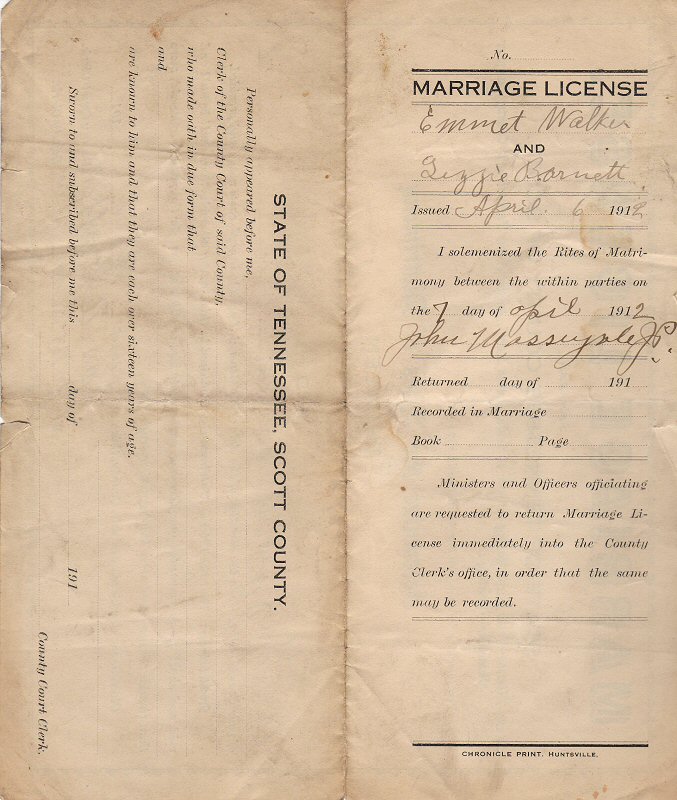 No.
MARRIAGE LICENSE
Emmet Walker
AND
Lizzie Barnett
Issued April 6 1912
I solemenized the Rites of Matri-
mony between the within parties on
the 7 day of april 1912
John Massengale J.P.
Returned day of 191
Recorded in Marriage
Book Page
Ministers and Officers officiating
are requested to return Marriage Li-
cense immediately into the County
Clerk's office, in order that the same
may be recorded.
CHRONICLE PRINT. HUNTSVILLE.
STATE OF TENNESSEE, SCOTT COUNTY.
Personally appeared before me,
Clerk of the County Court of said County,
who made oath in due form that
and
are known to him and that they are each over sixteen years of age.
Sworn to and subscribed before me this day of 191
County Court Clerk.